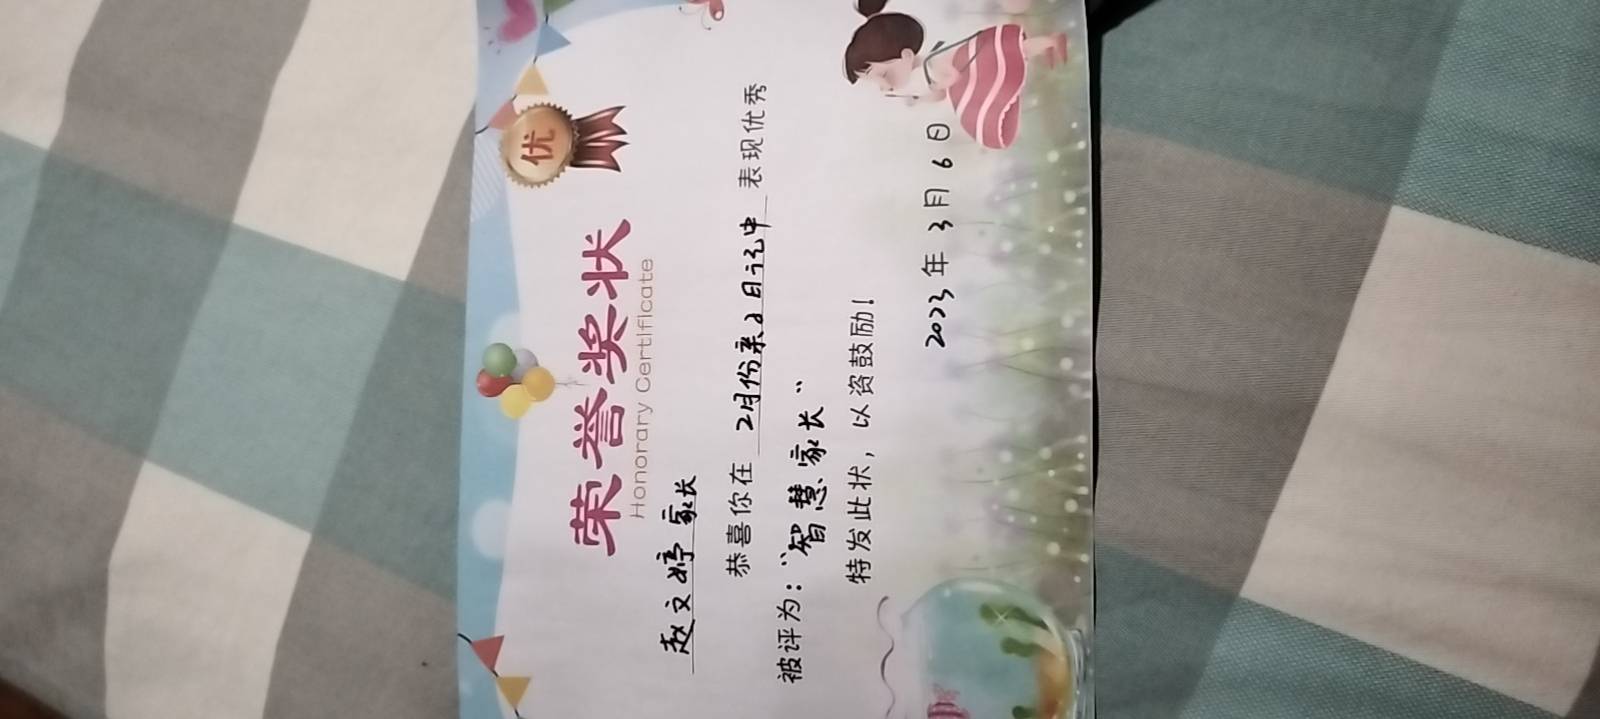 优
荣誉奖状
Honorary Certificate
赵文婷 家长
恭喜你在 2月份亲子日记中 表现优秀
被评为：“智慧家长”
特发此状，以资鼓励！
2023年3月6日